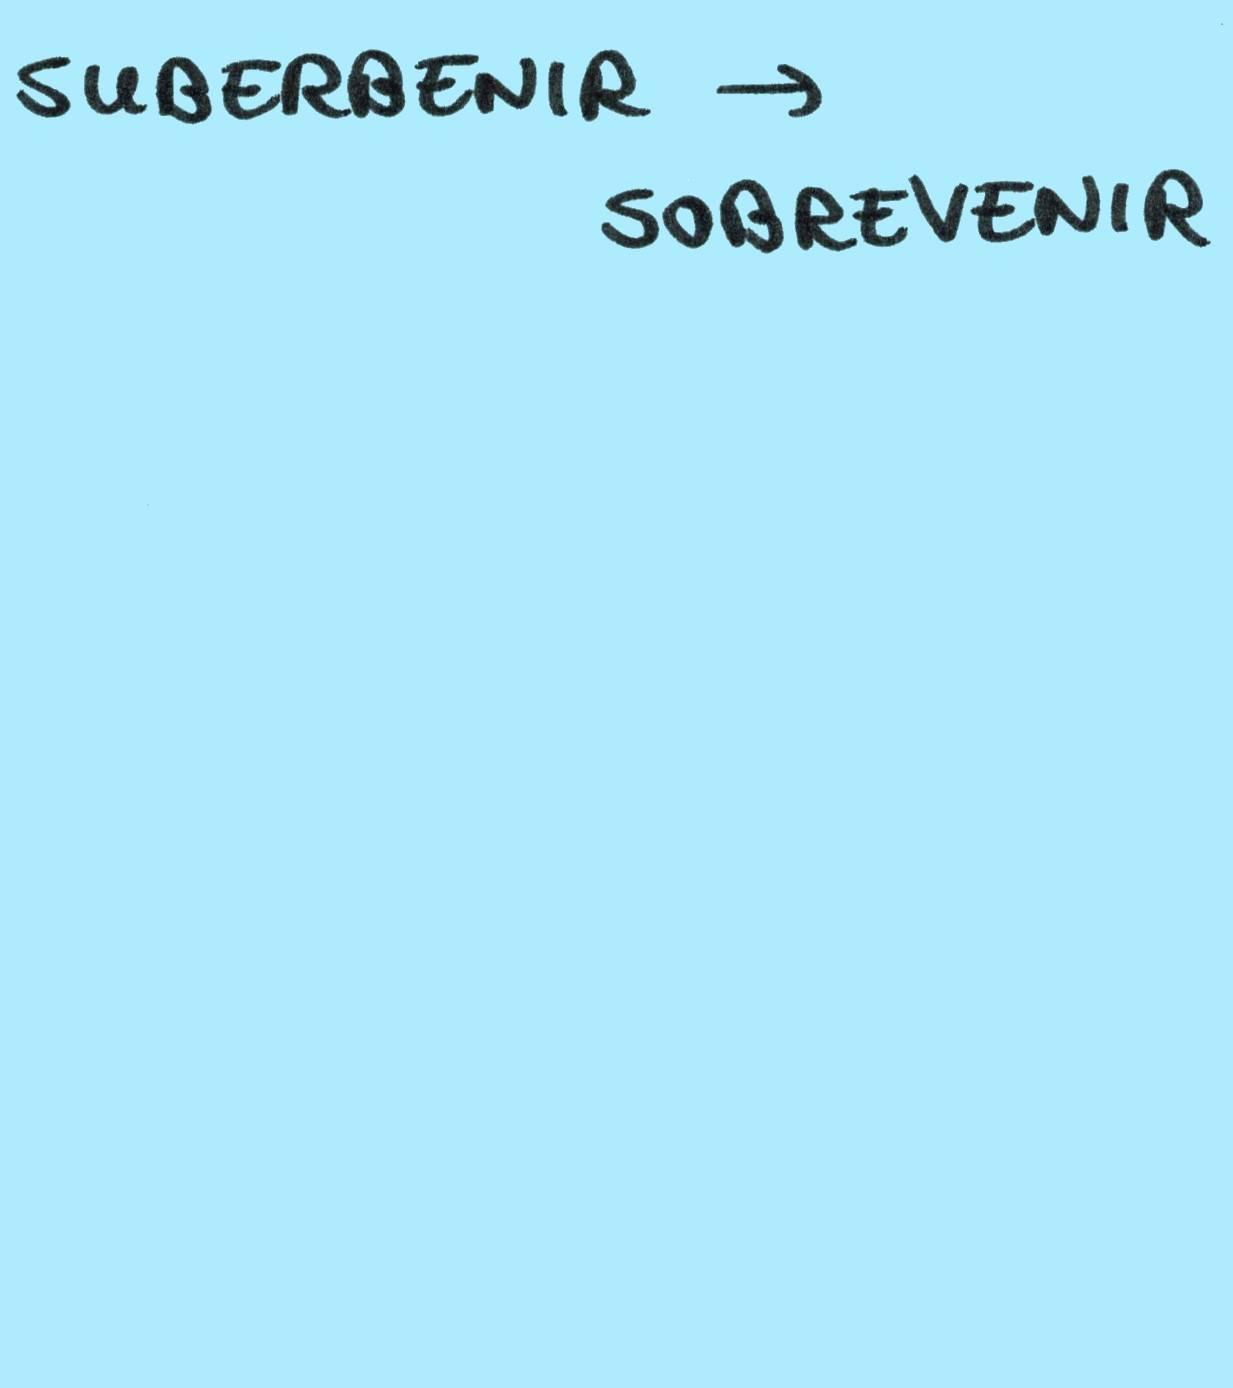 SUBERBENIR →
SOBREVENIR